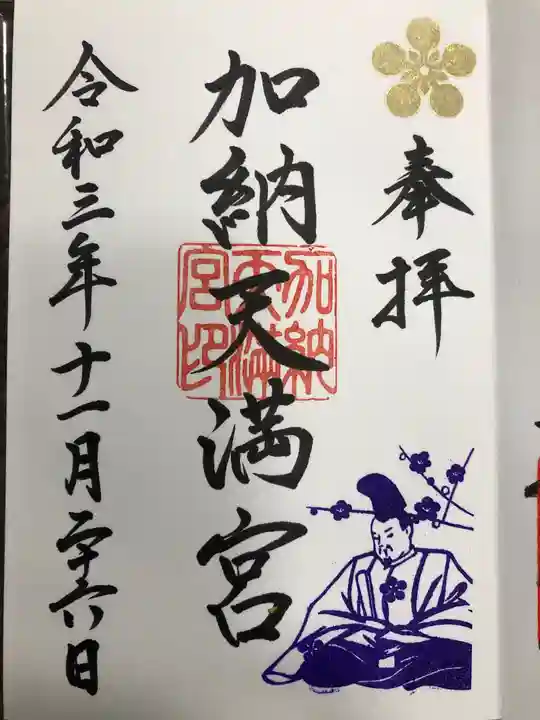 奉拝
加納天満宮
加納
天満
宮印
令和三年十一月二十六日